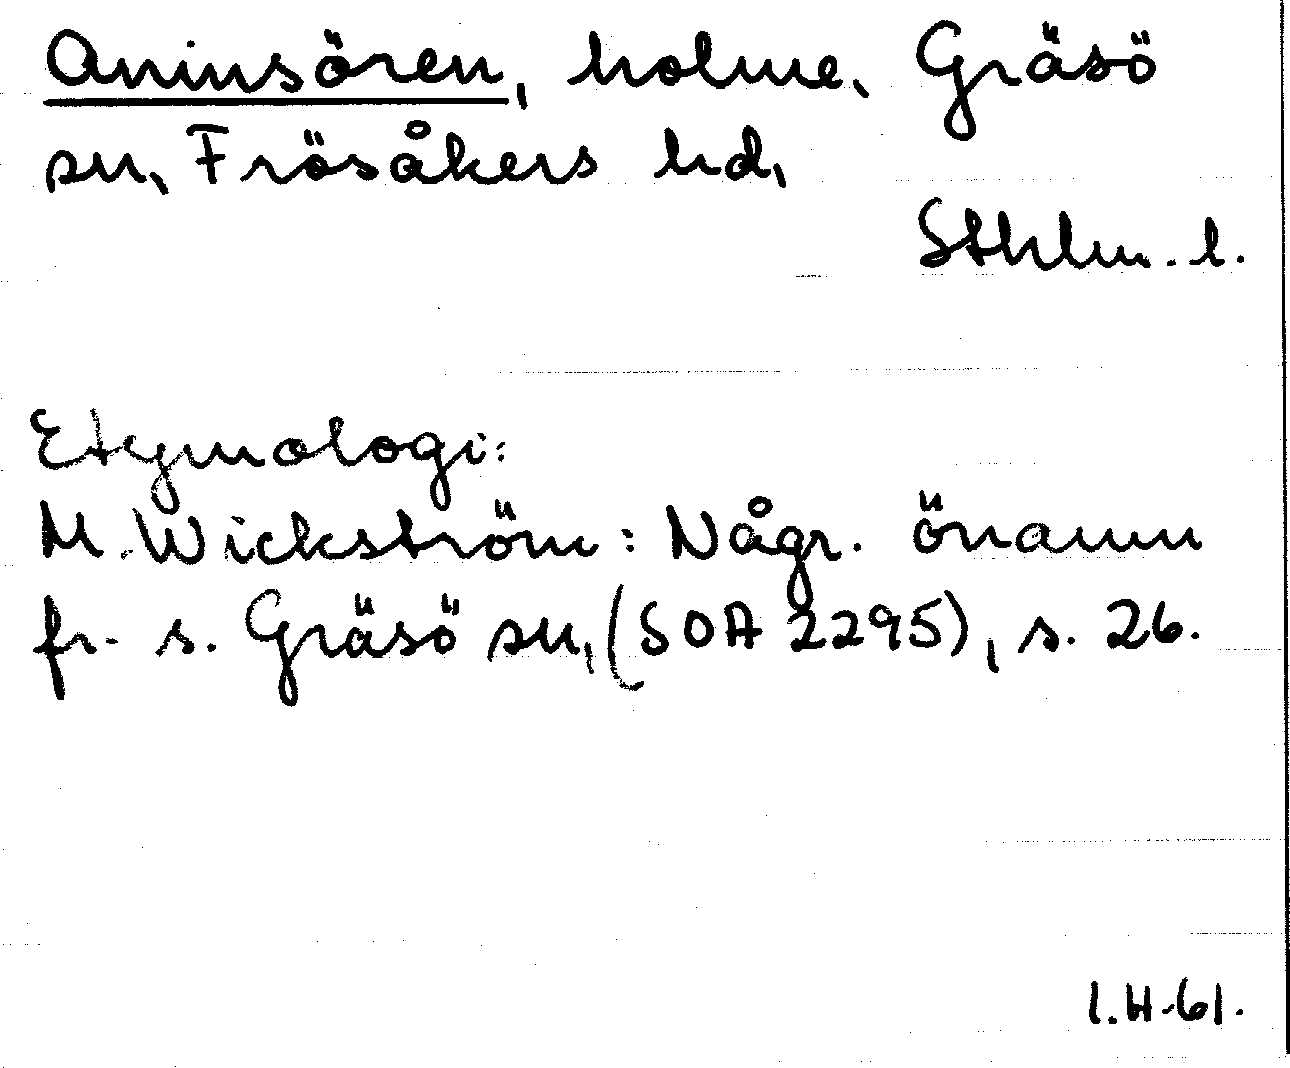 Aninsören, holme, Gräsö
sn, Frösåkers hd,
Sthlm. l.
Etymologi:
M. Wickström: Någr. önamn
fr. s. Gräsö sn, (SOA 2295), s. 26.
I.H-61.